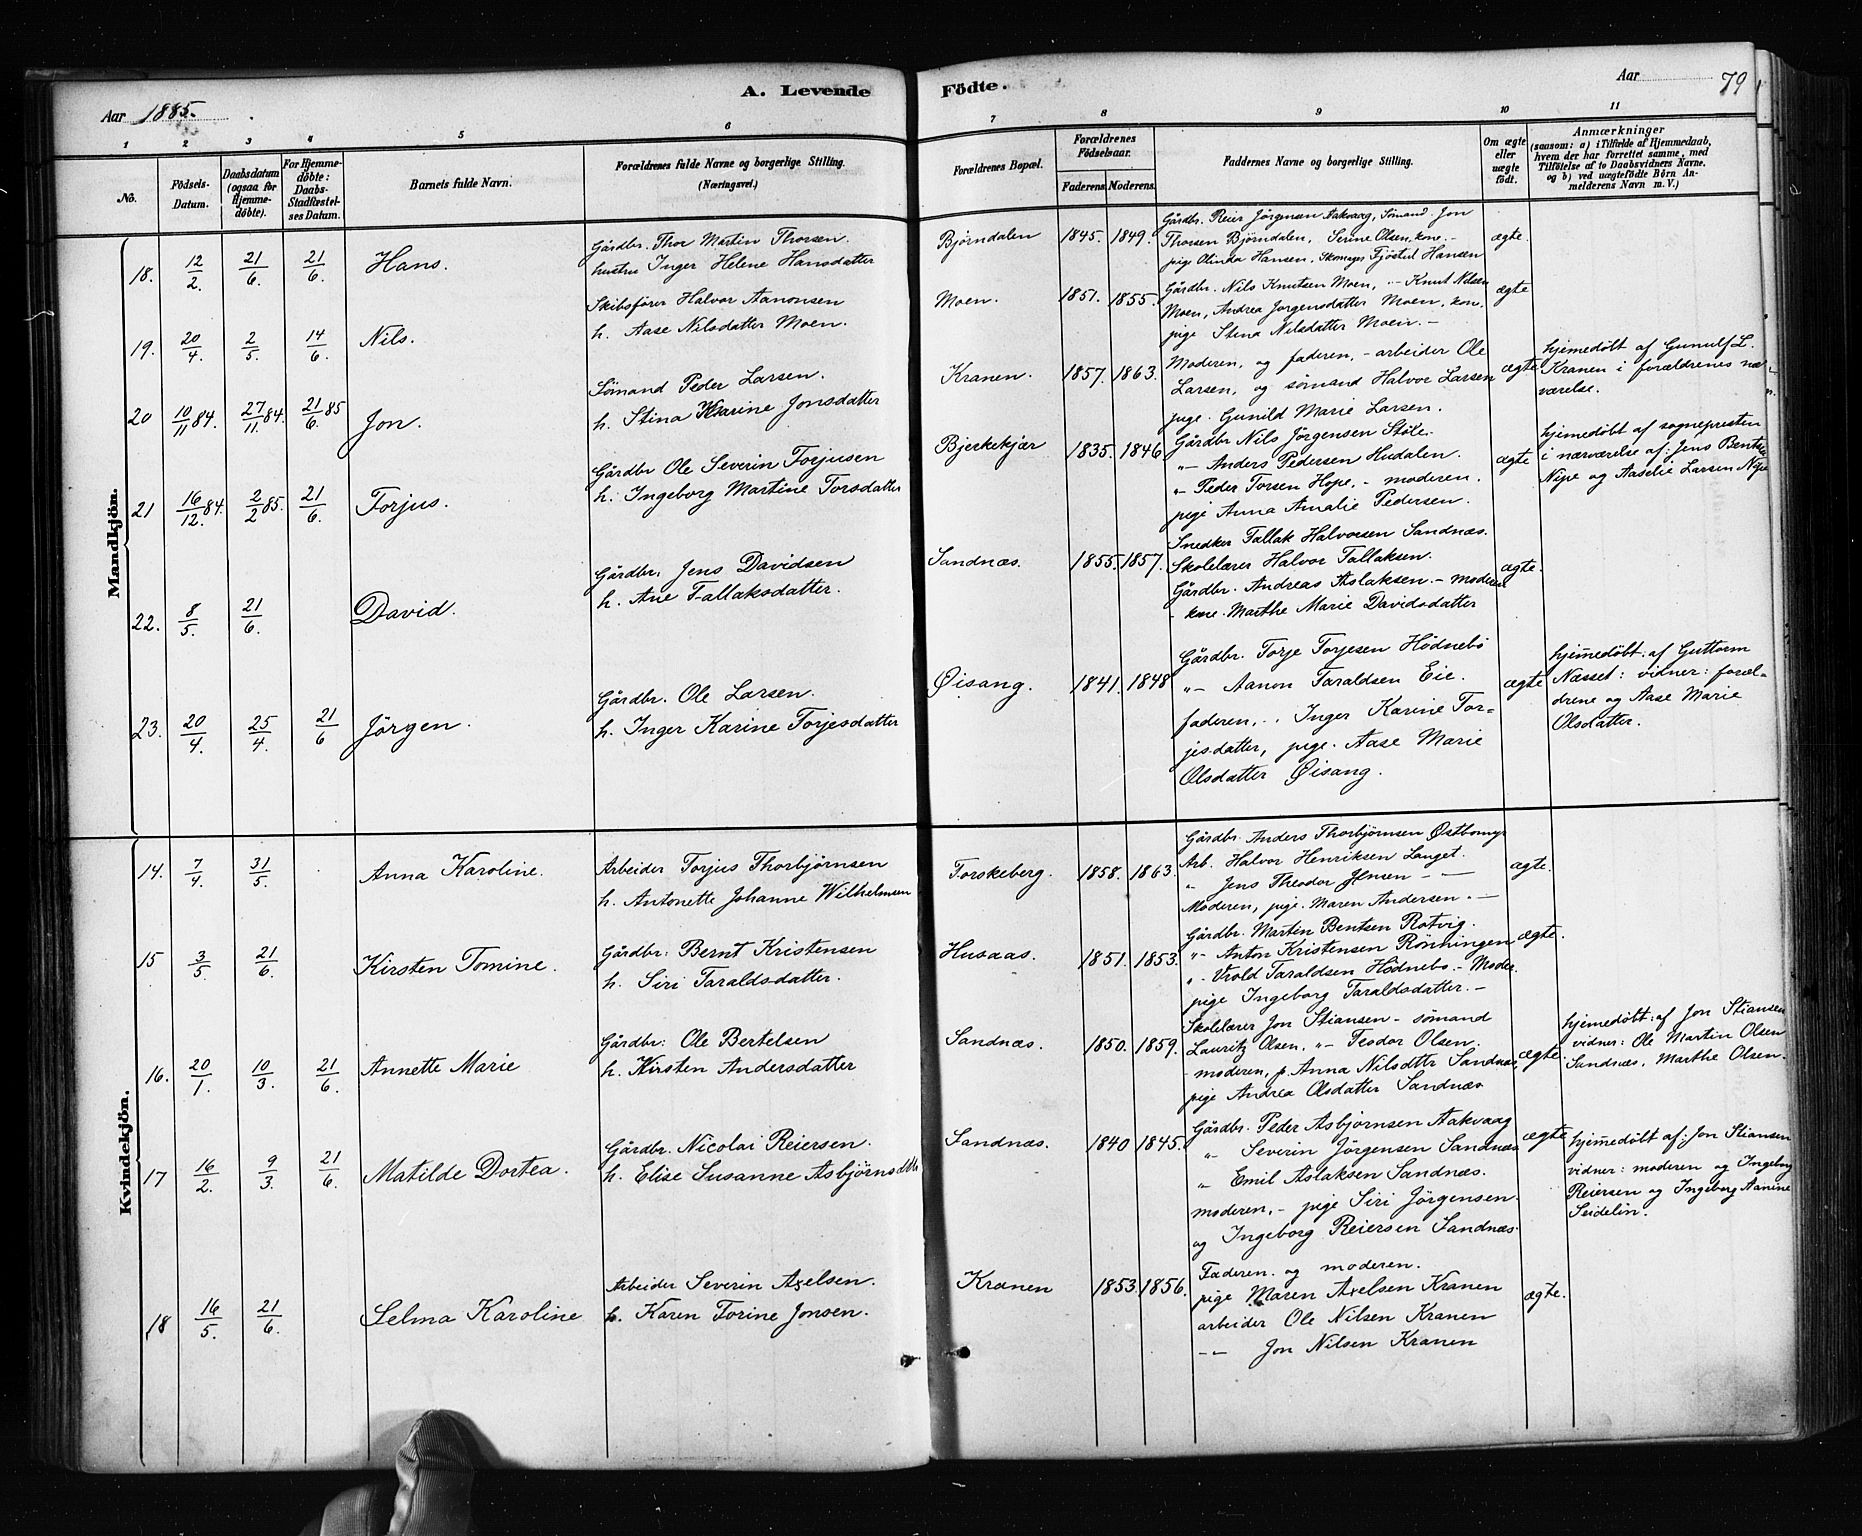 Aar 1885. A. Levende Födte. Aar 79
1 2 3 4 5 6 7 8 9 10 11
No. Födsels-Datum. Daabsdatum (ogsaa for Hjemme-döbte). For Hjemme-döbte: Daabs-Stadfæstel-ses Datum. Barnets fulde Navn. Forældrenes fulde Navne og borgerlige Stilling. (Næringsvei.) Forældrenes Bopæl. Forældrenes Födselsaar. Faderens. Moderens. Faddernes Navne og borgerlige Stilling. Om ægte eller uægte födt. Anmærkninger (saasom: a) i Tilfælde af Hjemmedaab, hvem der har forrettet samme, med Tilföielse af to Daabsvidners Navne. og b) ved uægtefödte Börn An-melderens Navn m. V.)
Mandkjön.
18. 12/2. 21/6. 21/6. Hans.
Gårdbr. Thor Martin Thorsen.
hustru Inger Helene Hansdatter
Bjørndalen 1845. 1849.
Gårdbr. Reier Jörgensen Aakvaag, Sömand. Jon
Thorsen Björndalen, Serine Olsen, kone. –
pige Olinda Hansen, Fjöstul Hansen
ægte.
19. 20/4. 2/5. 14/6. Nils.
Skibsfører Halvor Aanonsen
h. Aase Nilsdatter Moen.
Moen. 1851. 1855.
Gårdbr. Nils Knutsen Moen, – Knut Nilsen
Moen, Andrea Jorgensdatter Moen, kone.
pige Stina Nilsdatter Moen. –
ægte
20 10/11 84. 27/11 84. 21/6 85 Jon.
Sömand Peder Larsen.
h. Stina Karine Jonsdatter
Kranen. 1857. 1863.
Moderen, og faderen, – arbeider Ole
Larsen, og sömand Halvor Larsen
pige. Gunild Marie Larsen.
ægte
hjemedöbt af Gunulf L.
Kranen i forældrenes næ-
værelse.
21 16/12. 84. 2/2 85. 21/6. Torjus.
Gårdbr Ole Severin Torjusen
h. Ingeborg Martine Torsdatter
Bjerkekjær 1835. 1846
Gårdbr Nils Jörgensen Stöle.
„– Anders Pedersen Hudalen.
„– Peder Torsen Hope, – moderen.
pige Anna Amalie Pedersen.
ægte
hjemedöbt af sognepresten
i nærværelse af: Jens Bentsen
Nipe og Aaselie Larsen Nipe
22. 8/5. 21/6. David.
Gårdbr. Jens Davidsen
h. Ane Tallaksdatter.
Sandnæs. 1855. 1857.
Snedker Tallak Halvorsen Sandnæs.
Skolelærer Halvor Tallaksen.
Gårdbr. Andreas Aslaksen. – moderen
– kone. Marthe Marie Davidsdatter
ægte.
23. 20/4. 25/4. 21/6 Jörgen.
Gårdbr. Ole Larsen.
h. Inger Karine Torjesdatter
Øisang. 1841. 1848
Gårdbr. Torje Torjesen Hödnebö
„– Aanon Taraldsen Eie.
faderen, – Inger Karine Tor-
jesdatter, pige. Aase Marie
Olsdatter Øisang.
ægte
hjemedöbt af Guttorm
Næsset: vidner: foræl-
drene og Aase Marie
Olsdatter.
Kvindekjön.
14. 7/4. 31/5. Anna Karoline.
Arbeider Torjus Thorbjørnsen
h. Antonette Johanne Wilhelmsen
Torskeberg. 1858. 1863.
Gårdbr. Anders Thorbjörnsen Østbomyr
Arb. Halvor Henriksen Langet.
„ Jens Theodor Jensen – –
Moderen, pige. Maren Andersen. –
ægte.
15 3/5. 21/6. Kirsten Tomine.
Gårdbr: Bernt Kristensen
h. Siri Taraldsdatter.
Husaas. 1851. 1853.
Gårdbr. Martin Bentsen Rotvig.
„– Anton Kristensen Rönningen
„. Vrold Taraldsen Hödnebö. – Moder.
pige Ingeborg Taraldsdatter. –
ægte.
16. 20/1. 10/3. 21/6. Annette Marie
Gårdbr: Ole Bertelsen
h. Kirsten Andersdatter
Sandnæs. 1850. 1859.
Skolelærer Jon Stiansen – sömand
Lauritz Olsen, „– Teodor Olsen.
– moderen, p. Anna Nilsdttr Sandnæs,
pige Andrea Olsdatter Sandnæs
ægte
hjemedöbt: af Jon Stiansen
vidner: Ole Martin Olsen
Sandnæs, Marthe Olsen.
17 16/2. 9/3. 21/6. Matilde Dortea.
Gårdbr. Nicolai Reiersen.
h. Elise Susanne Asbjörnsdttr
Sandnæs. 1840 1845.
Gårdbr. Peder Asbjørnsen Aakvaag
„ Severin Jörgensen Sandnæs
„ Emil Aslaksen Sandnæs.
moderen, – pige Siri Jörgensen.
og Ingeborg Reiersen Sandnæs.
ægte
hjemedöbt af: Jon Stiansen
vidner: moderen og Ingeborg
Reiersen og Ingeborg Aanine
Seidelin.
18 16/5. 21/6. Selma Karoline
Arbeider Severin Axelsen.
h. Karen Torine Jonsen.
Kranen 1853. 1856.
Faderen. og moderen.
pige Maren Axelsen Kranen
arbeider Ole Nilsen Kranen
–„– Jon Nilsen Kranen
ægte.